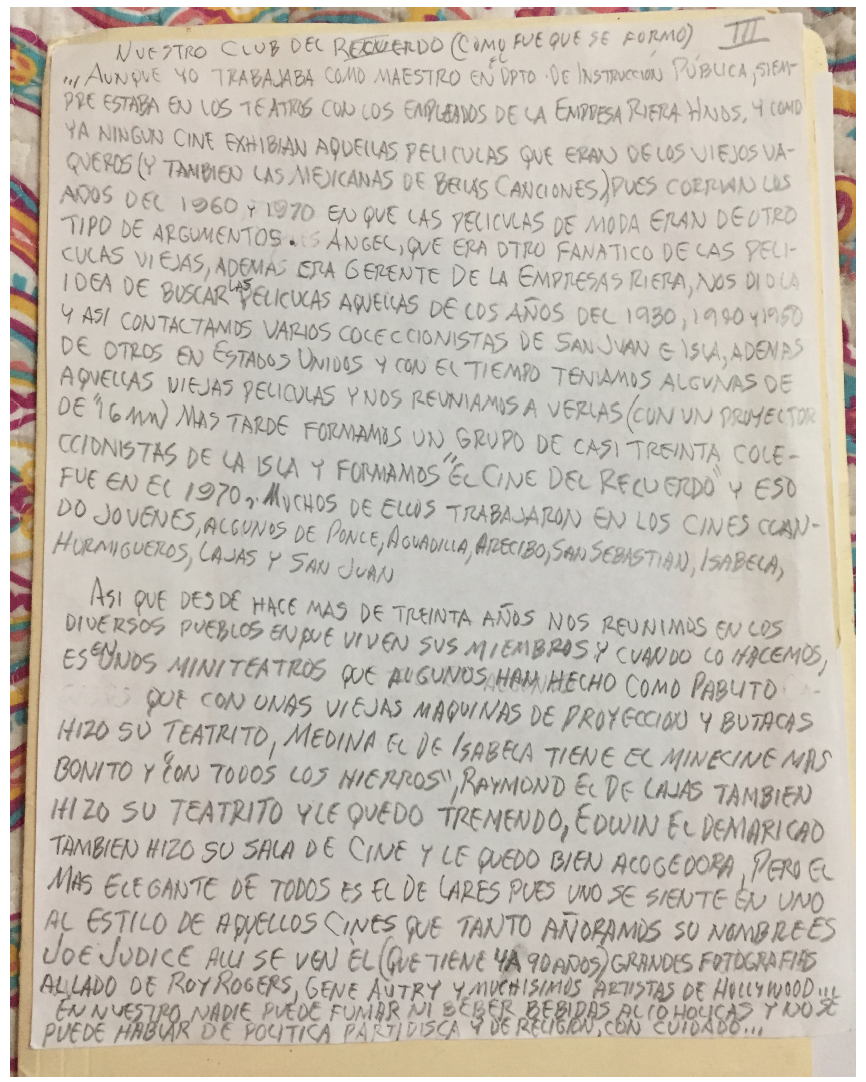 NUESTRO CLUB DEL RECUERDO (COMO FUE QUE SE FORMO) III
... AUNQUE YO TRABAJABA COMO MAESTRO EN EL DPTO. DE INSTRUCCION PÚBLICA, SIEM-
PRE ESTABA EN LOS TEATROS CON LOS EMPLEADOS DE LA EMPRESA RIERA HNOS, Y COMO
YA NINGUN CINE EXHIBIAN AQUELLAS PELICULAS QUE ERAN DE LOS VIEJOS VA-
QUEROS (Y TAMBIEN LAS MEJICANAS DE BELLAS CANCIONES) PUES CORRIAN LOS
AÑOS DEL 1960 Y 1970 EN QUE LAS PELICULAS DE MODA ERAN DE OTRO
TIPO DE ARGUMENTOS. ANGEL, QUE ERA OTRO FANATICO DE LAS PELI-
CULAS VIEJAS, ADEMAS ERA GERENTE DE LA EMPRESAS RIERA, NOS DIO LA
IDEA DE BUSCAR LAS PELICULAS AQUELLAS DE LOS AÑOS DEL 1930, 1940 Y 1950
Y ASI CONTACTAMOS VARIOS COLECCIONISTAS DE SAN JUAN E ISLA, ADEMAS
DE OTROS EN ESTADOS UNIDOS Y CON EL TIEMPO TENIAMOS ALGUNAS DE
AQUELLAS VIEJAS PELICULAS Y NOS REUNIAMOS A VERLAS (CON UN PROYECTOR
DE "16 MM) MAS TARDE FORMAMOS UN GRUPO DE CASI TREINTA COLE-
CCIONISTAS DE LA ISLA Y FORMAMOS "EL CINE DEL RECUERDO" Y ESO
FUE EN EL 1970, MUCHOS DE ELLOS TRABAJARON EN LOS CINES CUAN-
DO JOVENES, ALGUNOS DE PONCE, AGUADILLA, ARECIBO, SAN SEBASTIAN, ISABELA,
HURMIGUEROS, LAJAS Y SAN JUAN
ASI QUE DESDE HACE MAS DE TREINTA AÑOS NOS REUNIMOS EN LOS
DIVERSOS PUEBLOS EN QUE VIVEN SUS MIEMBROS Y CUANDO LO HACEMOS,
ES EN UNOS MINITEATROS QUE ALGUNOS HAN HECHO COMO PABLITO
QUE CON UNAS VIEJAS MAQUINAS DE PROYECCION Y BUTACAS
HIZO SU TEATRITO, MEDINA EL DE ISABELA TIENE EL MINECINE MAS
BONITO Y "CON TODOS LOS HIERROS", RAYMOND EL DE LAJAS TAMBIEN
HIZO SU TEATRITO Y LE QUEDO TREMENDO, EDWIN EL DE MARICAO
TAMBIEN HIZO SU SALA DE CINE Y LE QUEDO BIEN ACOGEDORA, PERO EL
MAS ELEGANTE DE TODOS ES EL DE LARES PUES UNO SE SIENTE EN UNO
AL ESTILO DE AQUELLOS CINES QUE TANTO AÑORAMOS SU NOMBRE ES
JOE JUDICE ALLI SE VEN ÉL (QUE TIENE YA 90 AÑOS) GRANDES FOTOGRAFIAS
AL LADO DE ROY ROGERS, GENE AUTRY Y MUCHISIMOS ARTISTAS DE HOLLYWOOD...
EN NUESTRO, NADIE PUEDE FUMAR NI BEBER BEBIDAS ALCOHOLICAS Y NO SE
PUEDE HABLAR DE POLITICA PARTIDISCA Y DE RELIGION, CON CUIDADO...